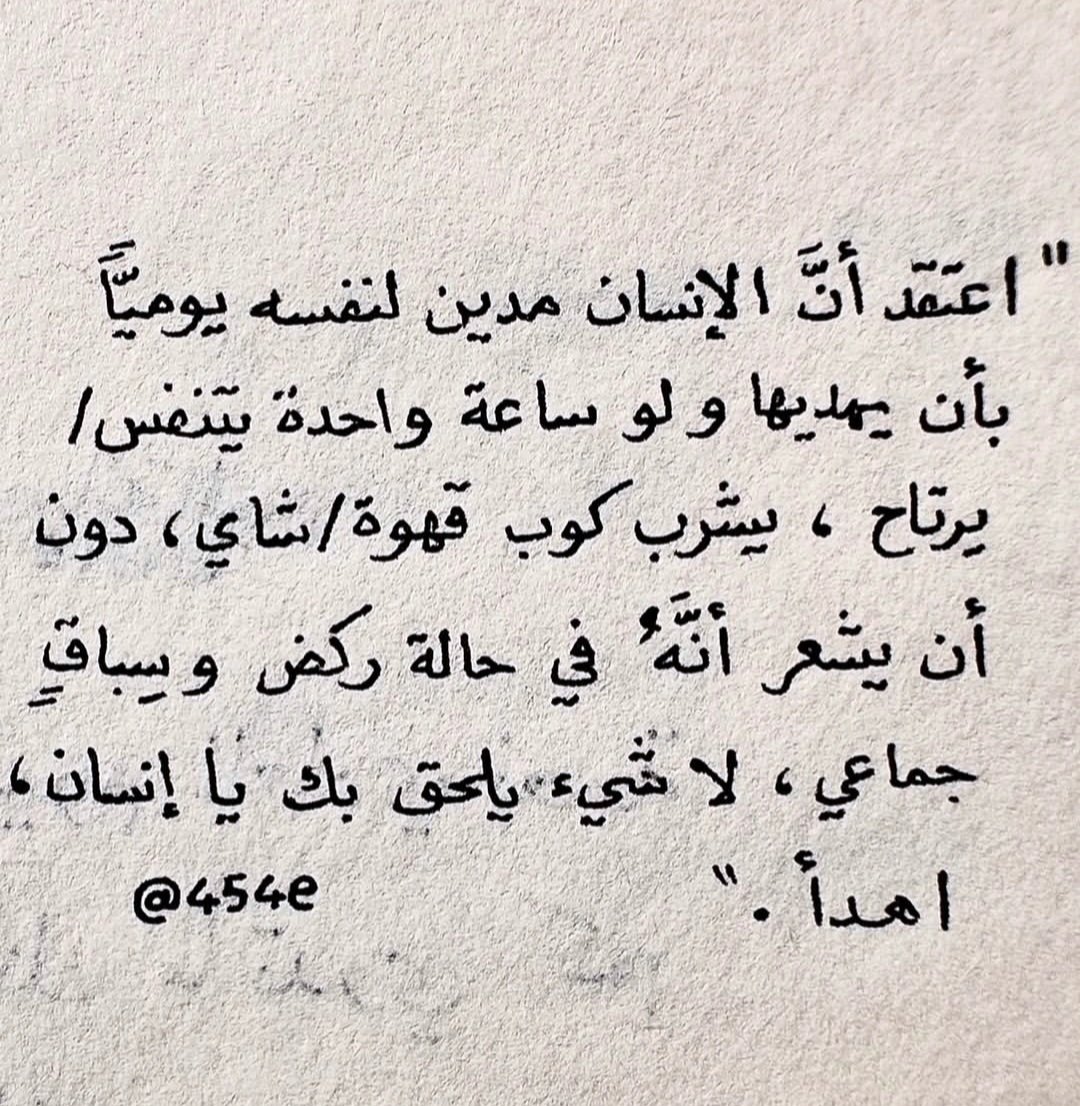 " اعتقد أنَّ الإنسان مدين لنفسه يوميًّا
بأن يهديها ولو ساعة واحدة يتنفس/
يرتاح ، يشرب كوب قهوة/شاي، دون
أن يشعر أنَّهُ في حالة ركض وسِباقٍ
جماعي ، لا شيء يلحق بك يا إنسان،
اهدأ . "
@454e